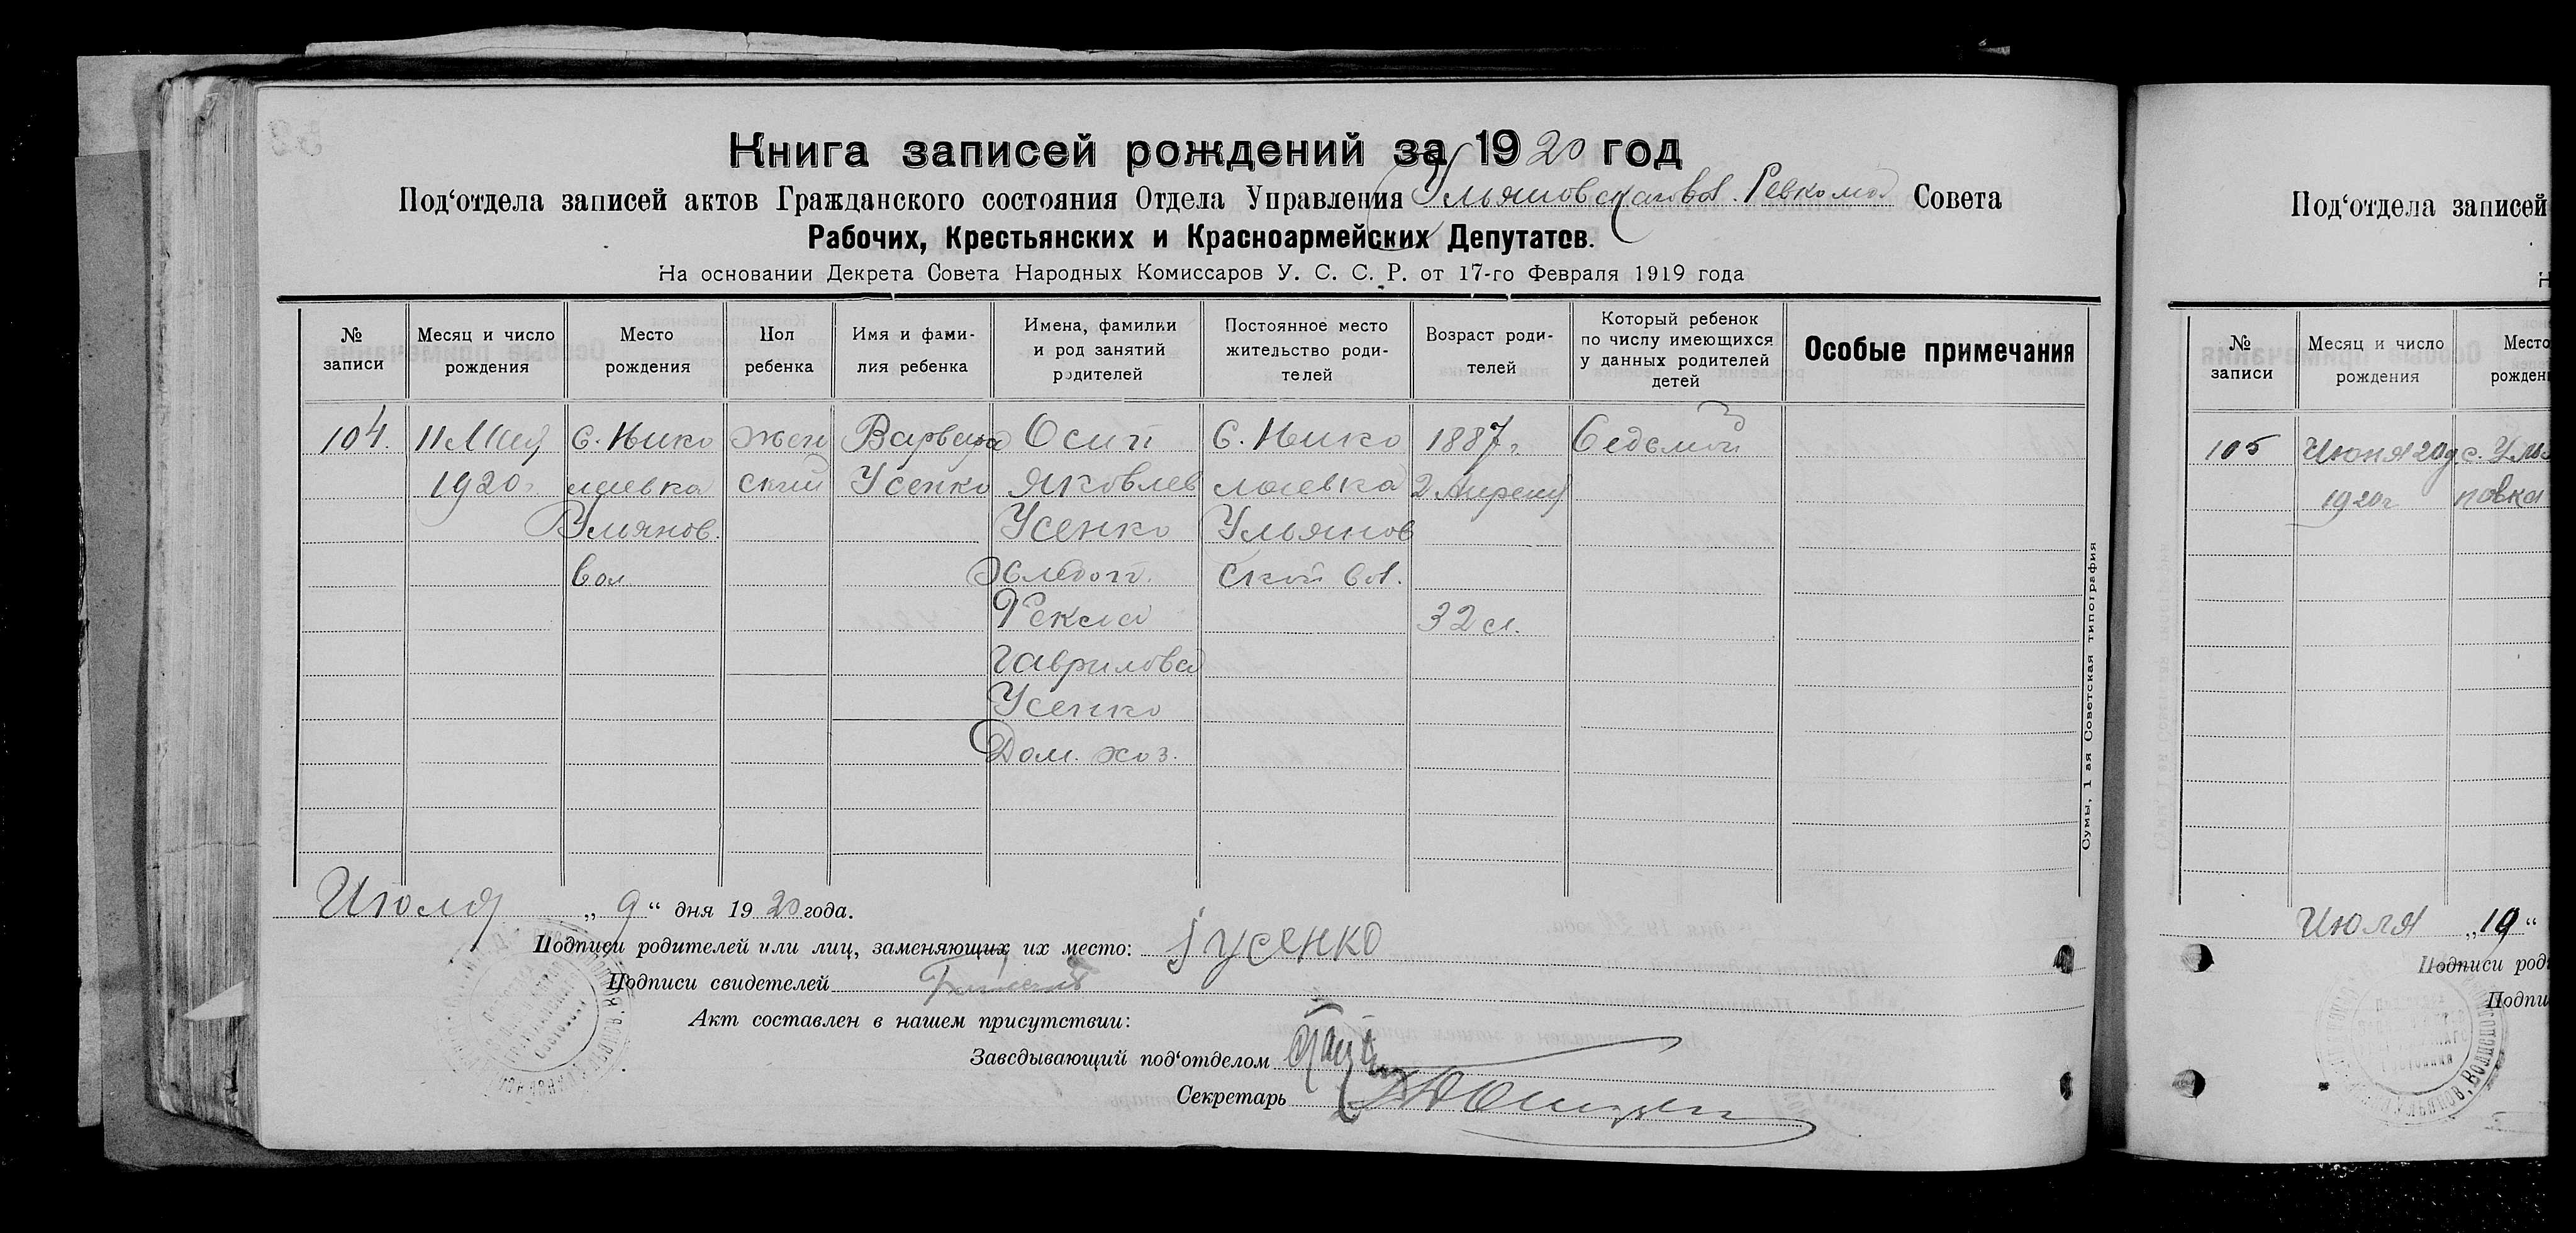 Книга записей рождений за 1920 год
Под‘отдела записей актов Гражданского состояния Отдела Управления Ульяновскаго вол. Ревкома Совета
Рабочих, Крестьянских и Красноармейских Депутатов.
На основании Декрета Совета Народных Комиссаров У. С. С. Р. от 17-го Февраля 1919 года
№ записи
Месяц и число рождения
Место рождения
Пол ребенка
Имя и фами-
лия ребенка
Имена, фамилии
и род занятий
родителей
Постоянное место
жительство роди-
телей
Возраст роди-
телей
Который ребенок
по числу имеющихся
у данных родителей
детей
Особые примечания
104. 11 Мая с. Нико жен Варвара Осип с. Нико 1887г Седьмой
1920г лаевка ский Усенко Яковлев лаевка 2 Апреля
Ульянов. Усенко Ульянов
вол. Хлебоп. ской вол.
Фекла 32 л.
Гаврилова
Усенко
Дом. хоз.
Сумы, 1 ая Советская типография
Июля „ 9 “ дня 1920 года.
Подписи родителей или лиц, заменяющих их место: Гусенко
Подписи свидетелей
Акт составлен в нашем присутствии:
Заведывающий под‘отделом
Секретарь
Под‘отдела записей
№ записи
Месяц и число рождения
Место
рожден
105 Июня 20д с. Уль
1920г новка
Июля „19“
Подписи род
Подпи